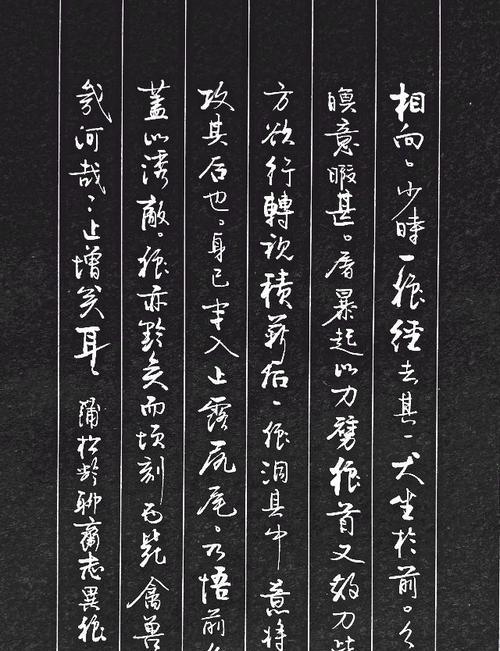 相向。少時一狼經去其一犬坐於前。久
瞑意暇甚。屠暴起以刀劈狼首又數刀
方欲行轉視積薪后一狼洞其中意將
攻其后也。身已半入止露尻尾。乃悟前
蓋以誘敵。狼亦黠矣而頃刻兩斃禽獸
幾何哉：止增笑耳 蒲松齡聊齋志異狼